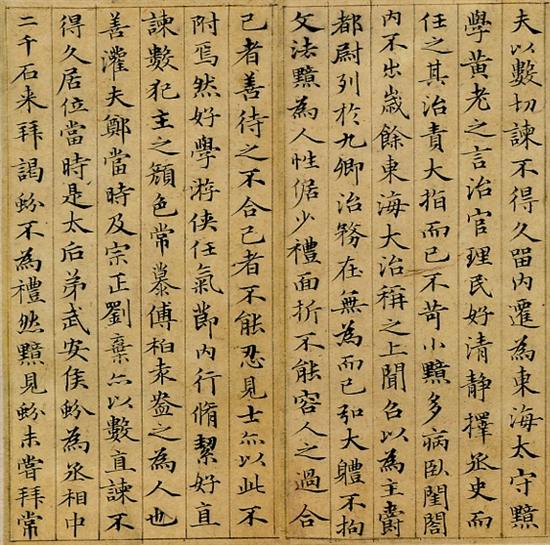 夫以數切諫不得久留內遷為東海太守黯
學黃老之言治官理民好清靜擇丞史而
任之其治責大指而已不苛小黯多病臥閨閤
內不出歲餘東海大治稱之上聞召以為主爵
都尉列於九卿治務在無為而已弘大體不拘
文法黯為人性倨少禮面折不能容人之過合
己者善待之不合己者不能忍見士亦以此不
附焉然好學游俠任氣節內行脩絜好直
諫數犯主之顏色常慕傅柏袁盎之為人也
善灌夫鄭當時及宗正劉棄亦以數直諫不
得久居位當時是太后弟武安侯蚡為丞相中
二千石来拜謁蚡不為禮然黯見蚡未嘗拜常